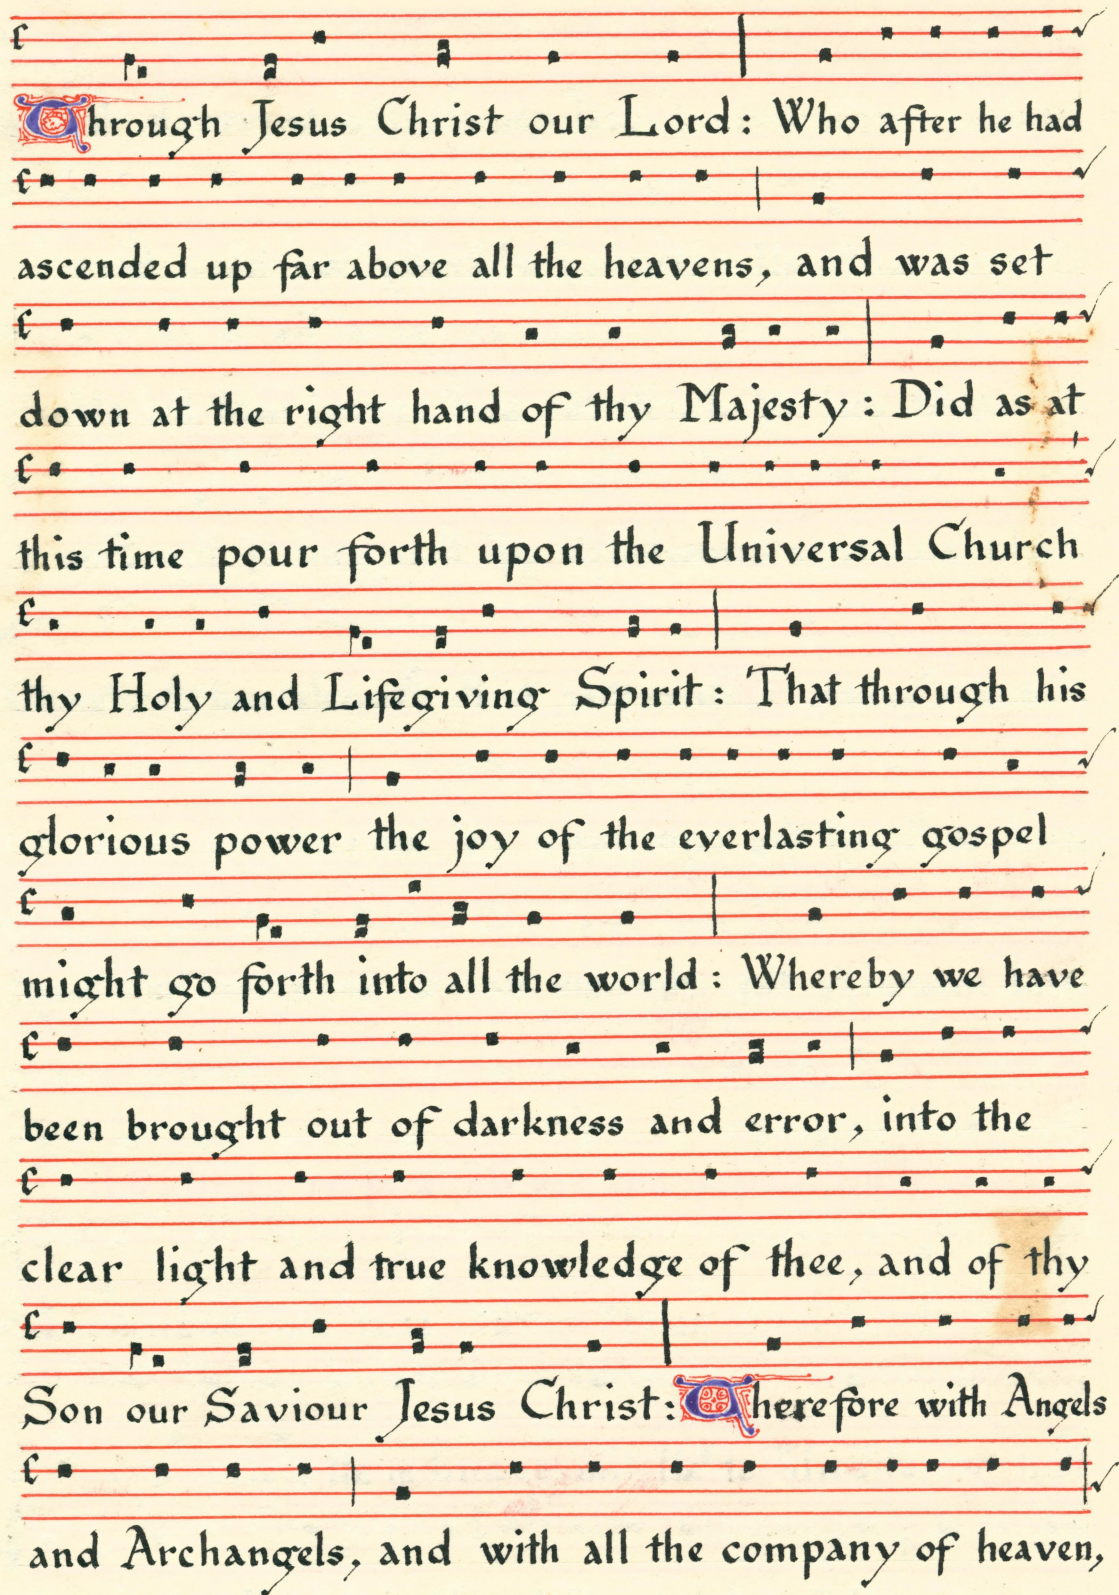 Through Jesus Christ our Lord: Who after he had
ascended up far above all the heavens, and was set
down at the right hand of thy Majesty: Did as at
this time pour forth upon the Universal Church
thy Holy and Lifegiving Spirit: That through his
glorious power the joy of the everlasting gospel
might go forth into all the world: Whereby we have
been brought out of darkness and error, into the
clear light and true knowledge of thee, and of thy
Son our Saviour Jesus Christ: Therefore with Angels
and Archangels, and with all the company of heaven,